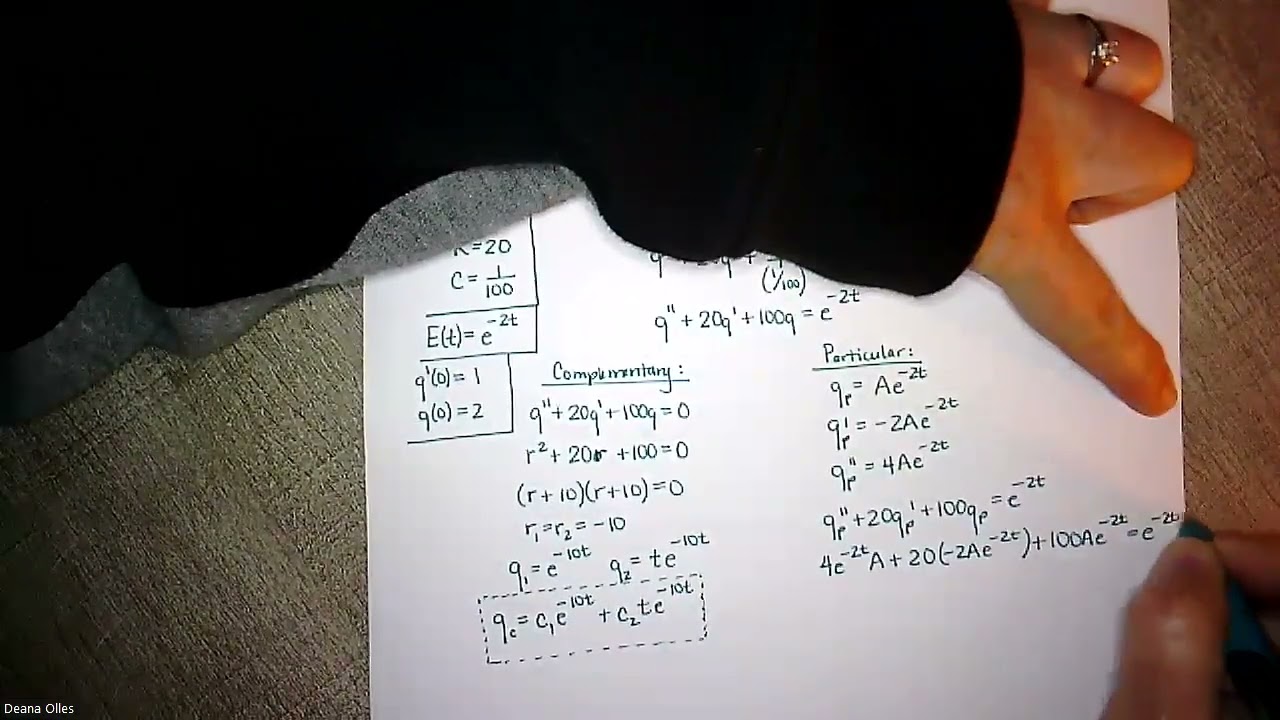 R=20
C= 1/100
E(t)= e^-2t
q'(0)= 1
q(0)=2
(1/100)
q''+20q'+100q = e^-2t
Complimentary:
q''+20q'+100q=0
r²+20r+100=0
(r+10)(r+10)=0
r₁=r₂= -10
q₁=e^-10t q₂= te^-10t
q_c= c₁e^-10t + c₂te^-10t
Particular:
q_p= Ae^-2t
q_p'= -2Ae^-2t
q_p''= 4Ae^-2t
q_p''+20q_p'+100q_p=e^-2t
4e^-2tA+20(-2Ae^-2t)+100Ae^-2t=e^-2t
Deana Olles